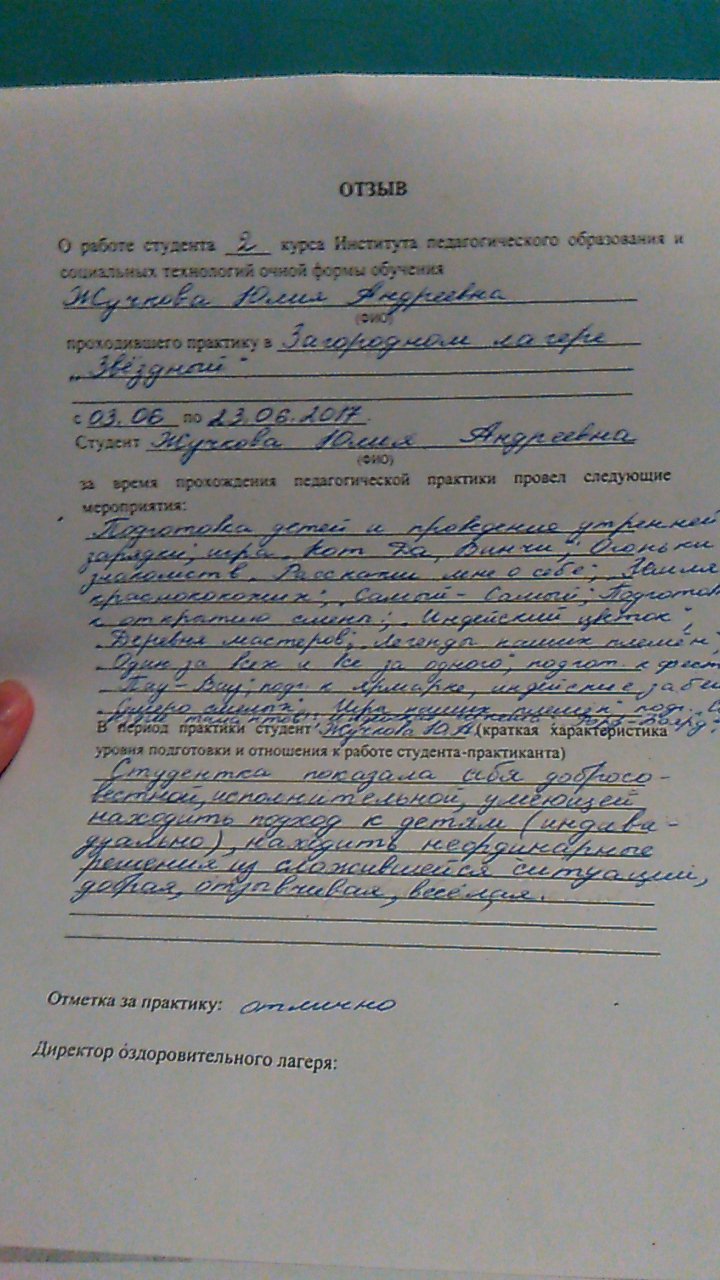 ОТЗЫВ
О работе студента 2 курса Института педагогического образования и
социальных технологий очной формы обучения
Жучкова Юлия Андреевна
(ФИО)
проходившего практику в Загородном лагере
„Звёздный"
с 03.06 по 23.06.2017.
Студент Жучкова Юлия Андреевна
(ФИО)
за время прохождения педагогической практики провел следующие
мероприятия:
Подготовка детей и проведение утренней
зарядки; игра „Кот Да, Винчи"; Огоньки
знакомств „Расскажи мне о себе"; „Земля
краснокожих"; „Самый-Самый"; Подготов
к открытию смены; „Индейский цветок",
„Деревня мастеров"; „Легенды наших племён",
„Один за всех и все за одного"; подгот. к фест
„Пау-Вау"; подг. к ярмарке, индейские забе
игры наших племён" подг.
В период практики студент Жучкова Ю.А. (краткая характеристика
уровня подготовки и отношения к работе студента-практиканта)
Студентка показала себя добросо-
вестной, исполнительной, умеющей
находить подход к детям (индиви-
дуально), находить неординарные
решения из сложившейся ситуации,
добрая, отзывчивая, весёлая.
Отметка за практику: отлично
Директор оздоровительного лагеря: